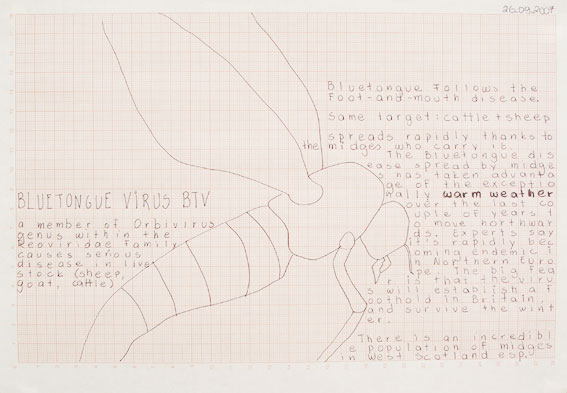 26.09.2007
Bluetongue follows the
foot-and-mouth disease.
Same target: cattle + sheep
spreads rapidly thanks to
the midges who carry it.
The Bluetongue dis
ease spread by midge
s has taken advanta
ge of the exceptio
nally warm weather
over the last co
uple of years t
o move northwar
ds. Experts say
it's rapidly bec
oming endemic i
n Northern Euro
pe. The big fea
r is that the viru
s will establish a f
oothold in Britain,
and survive the wint
er.
There is an incredibl
e population of midges
in west Scotland esp.
BLUETONGUE VIRUS BTV
a member of Orbivirus
genus within the
Reoviridae family
causes serious
disease in live
stock (sheep,
goat, cattle)